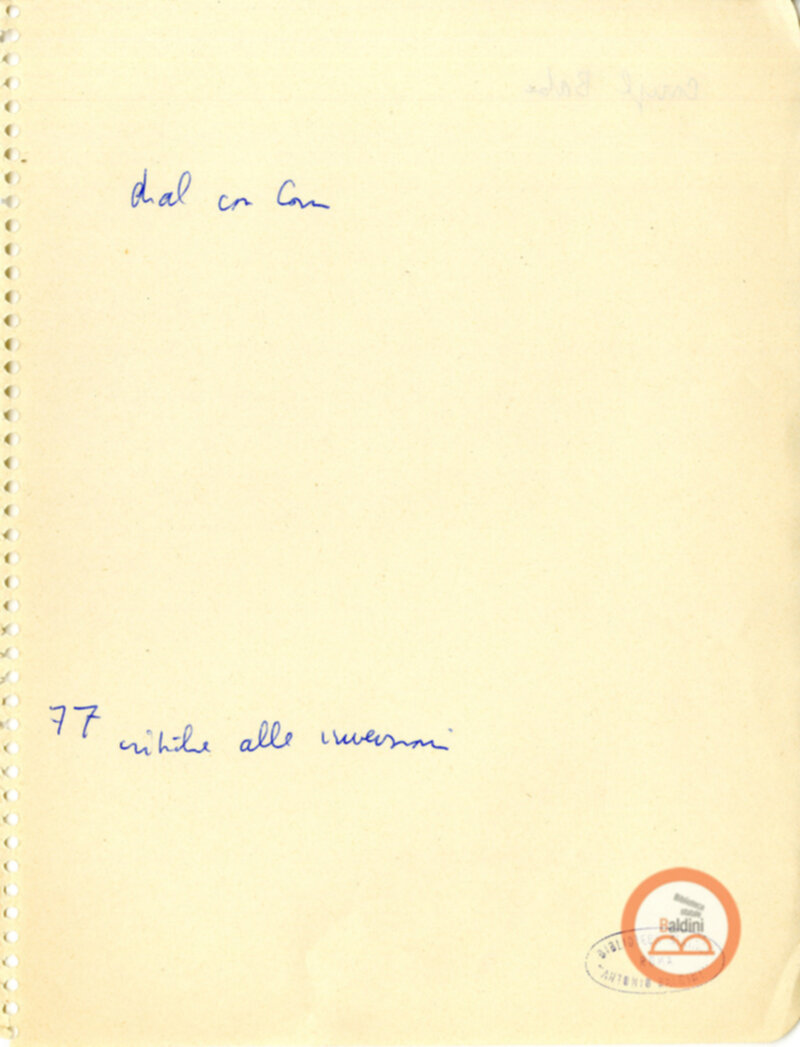 dial con Com
77 critiche alle inversioni
Biblioteca
statale
Baldini
BIBLIOTECA
ROMA
"ANTONIO BALDINI"